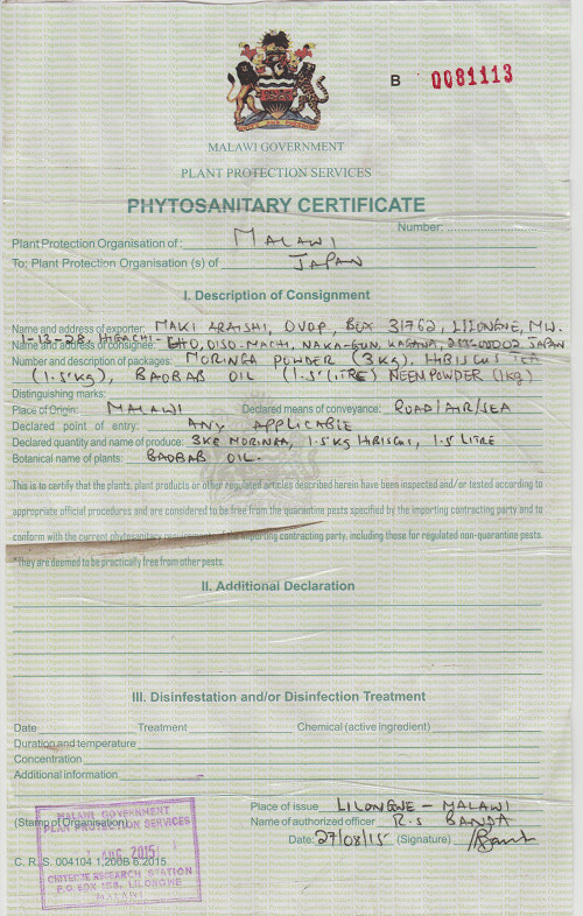 B 0081113
MALAWI GOVERNMENT
PLANT PROTECTION SERVICES
PHYTOSANITARY CERTIFICATE
Number: ........................
Plant Protection Organisation of : MALAWI
To; Plant Protection Organisation (s) of JAPAN
I. Description of Consignment
Name and address of exporter: MAKI ARAISHI, OVOP, BOX 31762, LILONGWE, MW.
Name and address of consignee: 1-13-28, HIGACHI-CHO, OISO-MACHI, NAKA-GUN, KAGANA, JAPAN
Number and description of packages: MORINGA POWDER (3KG), HIBISCUS TEA
(1.5KG), BAOBAB OIL (1.5 LITRE) NEEM POWDER (1KG)
Distinguishing marks:
Place of Origin: MALAWI Declared means of conveyance: ROAD/AIR/SEA
Declared point of entry: ANY APPLICABLE
Declared quantity and name of produce: 3KG MORINGA, 1.5KG HIBISCUS, 1.5 LITRE
Botanical name of plants: BAOBAB OIL.
This is to certify that the plants, plant products or other regulated articles described herein have been inspected and/or tested according to
appropriate official procedures and are considered to be free from the quarantine pests specified by the importing contracting party and to
conform with the current phytosanitary requirements of the importing contracting party, including those for regulated non-quarantine pests.
*They are deemed to be practically free from other pests.
II. Additional Declaration
III. Disinfestation and/or Disinfection Treatment
Date Treatment Chemical (active ingredient)
Duration and temperature
Concentration
Additional information
Place of issue LILONGWE - MALAWI
(Stamp of Organisation) Name of authorized officer R.S BANDA
Date: 27/08/15 (Signature)
MALAWI GOVERNMENT
PLANT PROTECTION SERVICES
AUG 2015
CHITEDZE RESEARCH STATION
P.O. BOX 158, LILONGWE
MALAWI
C. R. S. 004104 1,200B 6.2015